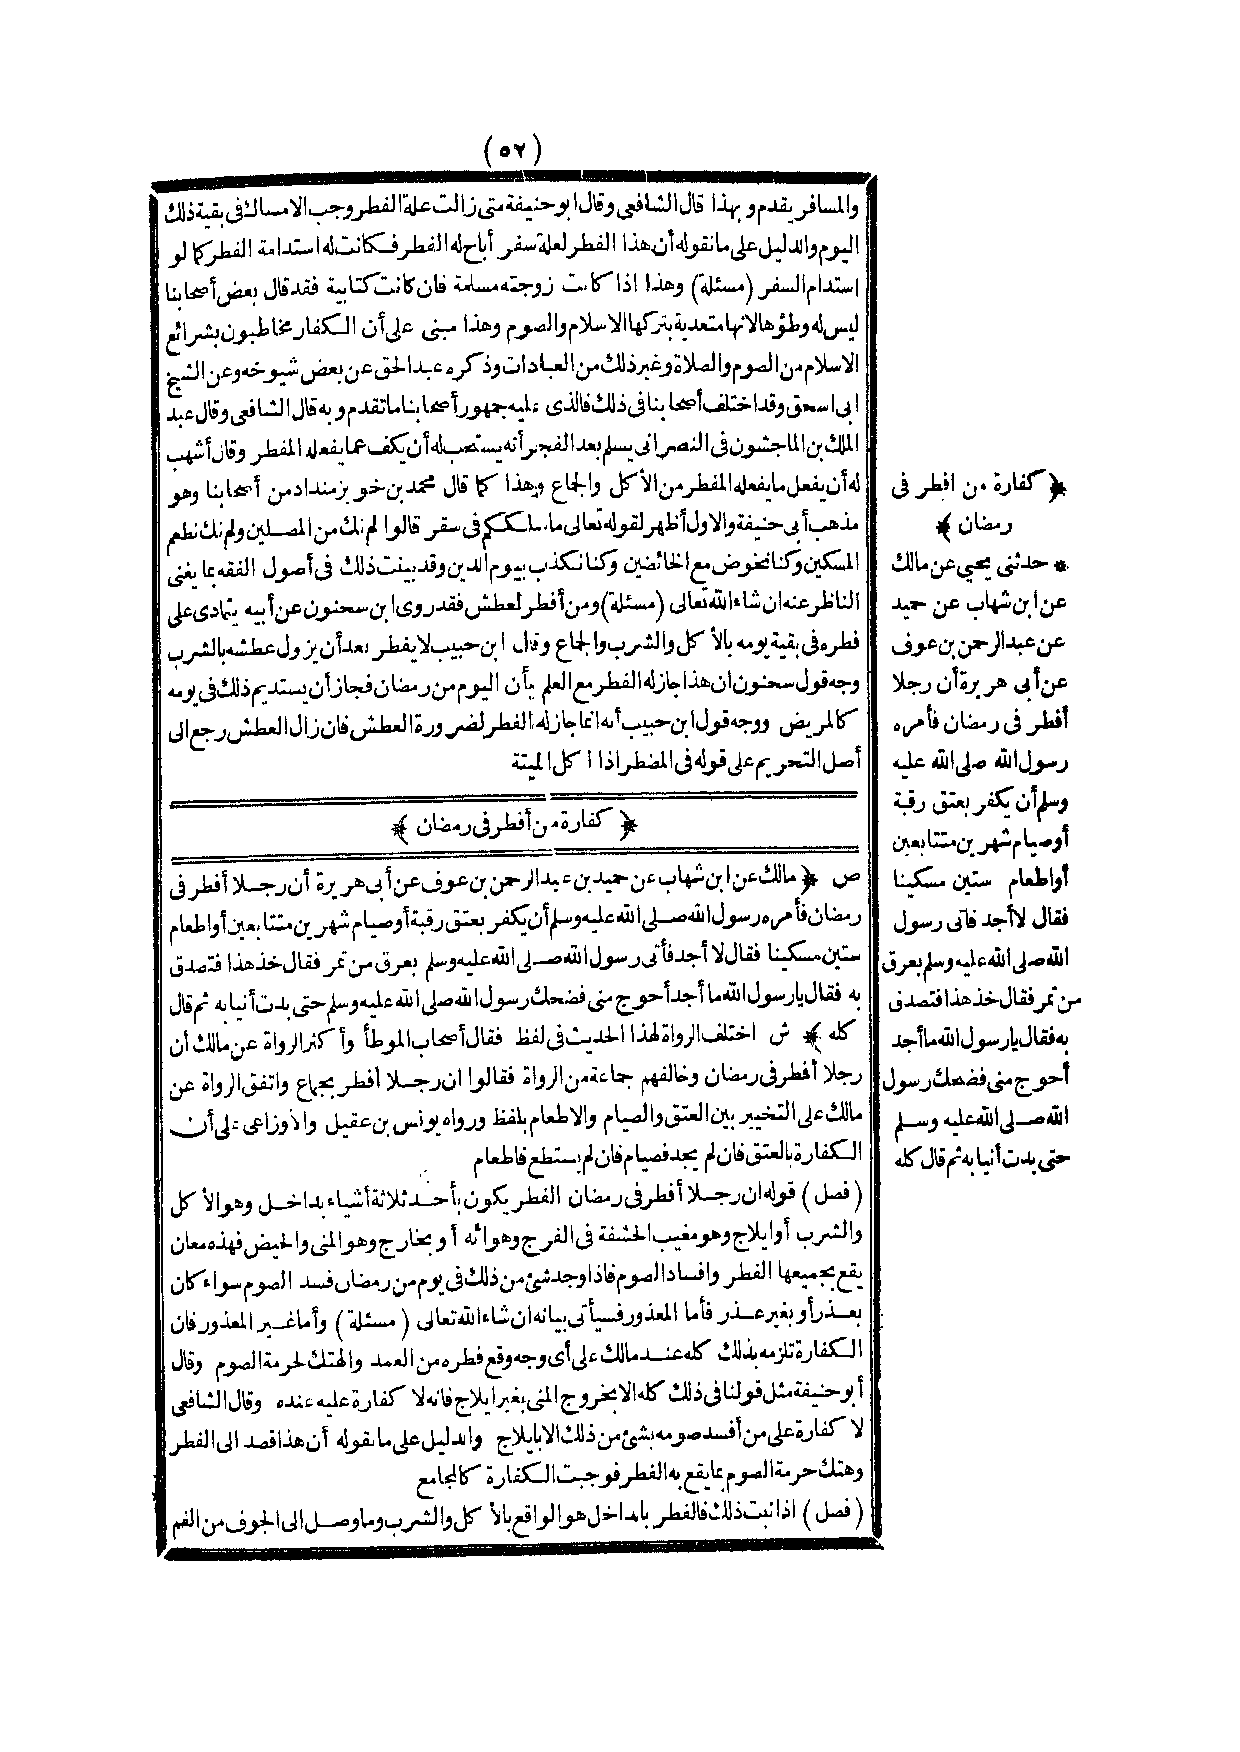 (٥٢)
والمسافر يقدم وبهذا قال الشافعى وقال ابو حنيفة متى زالت علة الفطر وجب الامساك فى بقية ذلك
اليوم والدليل على ما نقوله أن هذا الفطر لعلة سفر أباح له الفطر فكانت له استدامة الفطر كما لو
استدام السفر (مسئلة) وهذا اذا كانت زوجته مسلمة فان كانت كتابية فقد قال بعض أصحابنا
ليس له وطؤها لانها متعدية بتركها الاسلام والصوم وهذا مبنى على أن الكفار مخاطبون بشرائع
الاسلام من الصوم والصلاة وغير ذلك من العبادات وذكره عبد الحق عن بعض شيوخه وعن الشيخ
ابى اسحق وقد اختلف أصحابنا فى ذلك فالذى عليه جمهور أصحابنا ما تقدم وبه قال الشافعى وقال عبد
الملك بن الماجشون فى النصرانى يسلم بعد الفجر أنه يستحب له أن يكف عما يفعله المفطر وقال أشهب
له أن يفعل ما يفعله المفطر من الأكل والجماع وهذا كما قال محمد بن خويزمنداد من أصحابنا وهو
مذهب أبى حنيفة والاول أظهر لقوله تعالى ما سلككم فى سقر قالوا لم نك من المصلين ولم نك نطعم
المسكين وكنا نخوض مع الخائضين وكنا نكذب بيوم الدين وقد بينت ذلك فى أصول الفقه بما يغنى
الناظر عنه ان شاء الله تعالى (مسئلة) ومن أفطر لعطش فقد روى ابن سحنون عن أبيه يتمادى على
فطره فى بقية يومه بالأكل والشرب والجماع وقال ابن حبيب لا يفطر بعد أن يزول عطشه بالشرب
وجه قول سحنون ان هذا جاز له الفطر مع العلم بأن اليوم من رمضان فجاز أن يستديم ذلك فى يومه
كالمريض ووجه قول ابن حبيب أنه انما جاز له الفطر لضرورة العطش فان زال العطش رجع الى
أصل التحريم على قوله فى المضطر اذا أكل الميتة
﴿ كفارة من أفطر فى رمضان ﴾
ص ﴿ مالك عن ابن شهاب عن حميد بن عبد الرحمن بن عوف عن أبى هريرة أن رجلا أفطر فى
رمضان فأمره رسول الله صلى الله عليه وسلم أن يكفر بعتق رقبة أو صيام شهرين متتابعين أو اطعام
ستين مسكينا فقال لا أجد فأتى رسول الله صلى الله عليه وسلم بعرق من تمر فقال خذ هذا فتصدق
به فقال يا رسول الله ما أجد أحوج منى فضحك رسول الله صلى الله عليه وسلم حتى بدت أنيابه ثم قال
كله ﴾ ش اختلف الرواة لهذا الحديث فى لفظ فقال أصحاب الموطأ وأكثر الرواة عن مالك أن
رجلا أفطر فى رمضان وخالفهم جماعة من الرواة فقالوا ان رجلا أفطر بجماع واتفق الرواة عن
مالك على التخيير بين العتق والصيام والاطعام بلفظ ورواه يونس بن عقيل والأوزاعى على أن
الكفارة بالعتق فان لم يجد فصيام فان لم يستطع فاطعام
(فصل) قوله ان رجلا أفطر فى رمضان الفطر يكون بأحد ثلاثة أشياء بداخل وهو الأكل
والشرب أو ايلاج وهو مغيب الحشفة فى الفرج وهواته أو بخارج وهو المنى والحيض فهذه معان
يقع بجميعها الفطر وافساد الصوم فاذا وجد شئ من ذلك فى يوم من رمضان فسد الصوم سواء كان
بعذر أو بغير عذر فأما المعذور فسيأتى بيانه ان شاء الله تعالى (مسئلة) وأما غير المعذور فان
الكفارة تلزمه بذلك كله عند مالك على أى وجه وقع فطره من العمد والهتك لحرمة الصوم وقال
أبو حنيفة مثل قولنا فى ذلك كله الا بخروج المنى بغير ايلاج فانه لا كفارة عليه عنده وقال الشافعى
لا كفارة على من أفسد صومه بشئ من ذلك الا بايلاج والدليل على ما نقوله أن هذا قصد الى الفطر
وهتك حرمة الصوم بما يقع به الفطر فوجبت الكفارة كالمجامع
(فصل) اذا ثبت ذلك فالفطر بالداخل هو الواقع بالأكل والشرب وما وصل الى الجوف من الفم
﴿ كفارة من افطر فى
رمضان ﴾
* حدثنى يحيى عن مالك
عن ابن شهاب عن حميد
عن عبد الرحمن بن عوف
عن أبى هريرة أن رجلا
أفطر فى رمضان فأمره
رسول الله صلى الله عليه
وسلم أن يكفر بعتق رقبة
أو صيام شهرين متتابعين
أو اطعام ستين مسكينا
فقال لا أجد فاتى رسول
الله صلى الله عليه وسلم بعرق
من تمر فقال خذ هذا فتصدق
به فقال يا رسول الله ما أجد
أحوج منى فضحك رسول
الله صلى الله عليه وسلم
حتى بدت أنيابه ثم قال كله